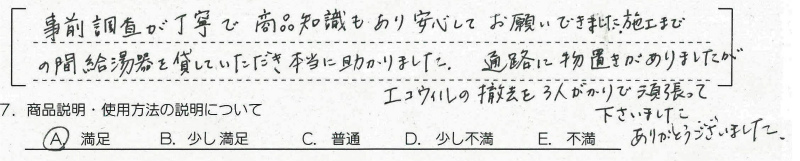 事前調査が丁寧で 商品知識もあり安心して お願いできました。施工まで
の間給湯器を貸していただき本当に助かりました。 通路に物置きがありましたが
エコウィルの撤去を3人がかりで頑張って
下さいました
ありがとうございました。
7. 商品説明・使用方法の説明について
A. 満足 B. 少し満足 C. 普通 D. 少し不満 E. 不満